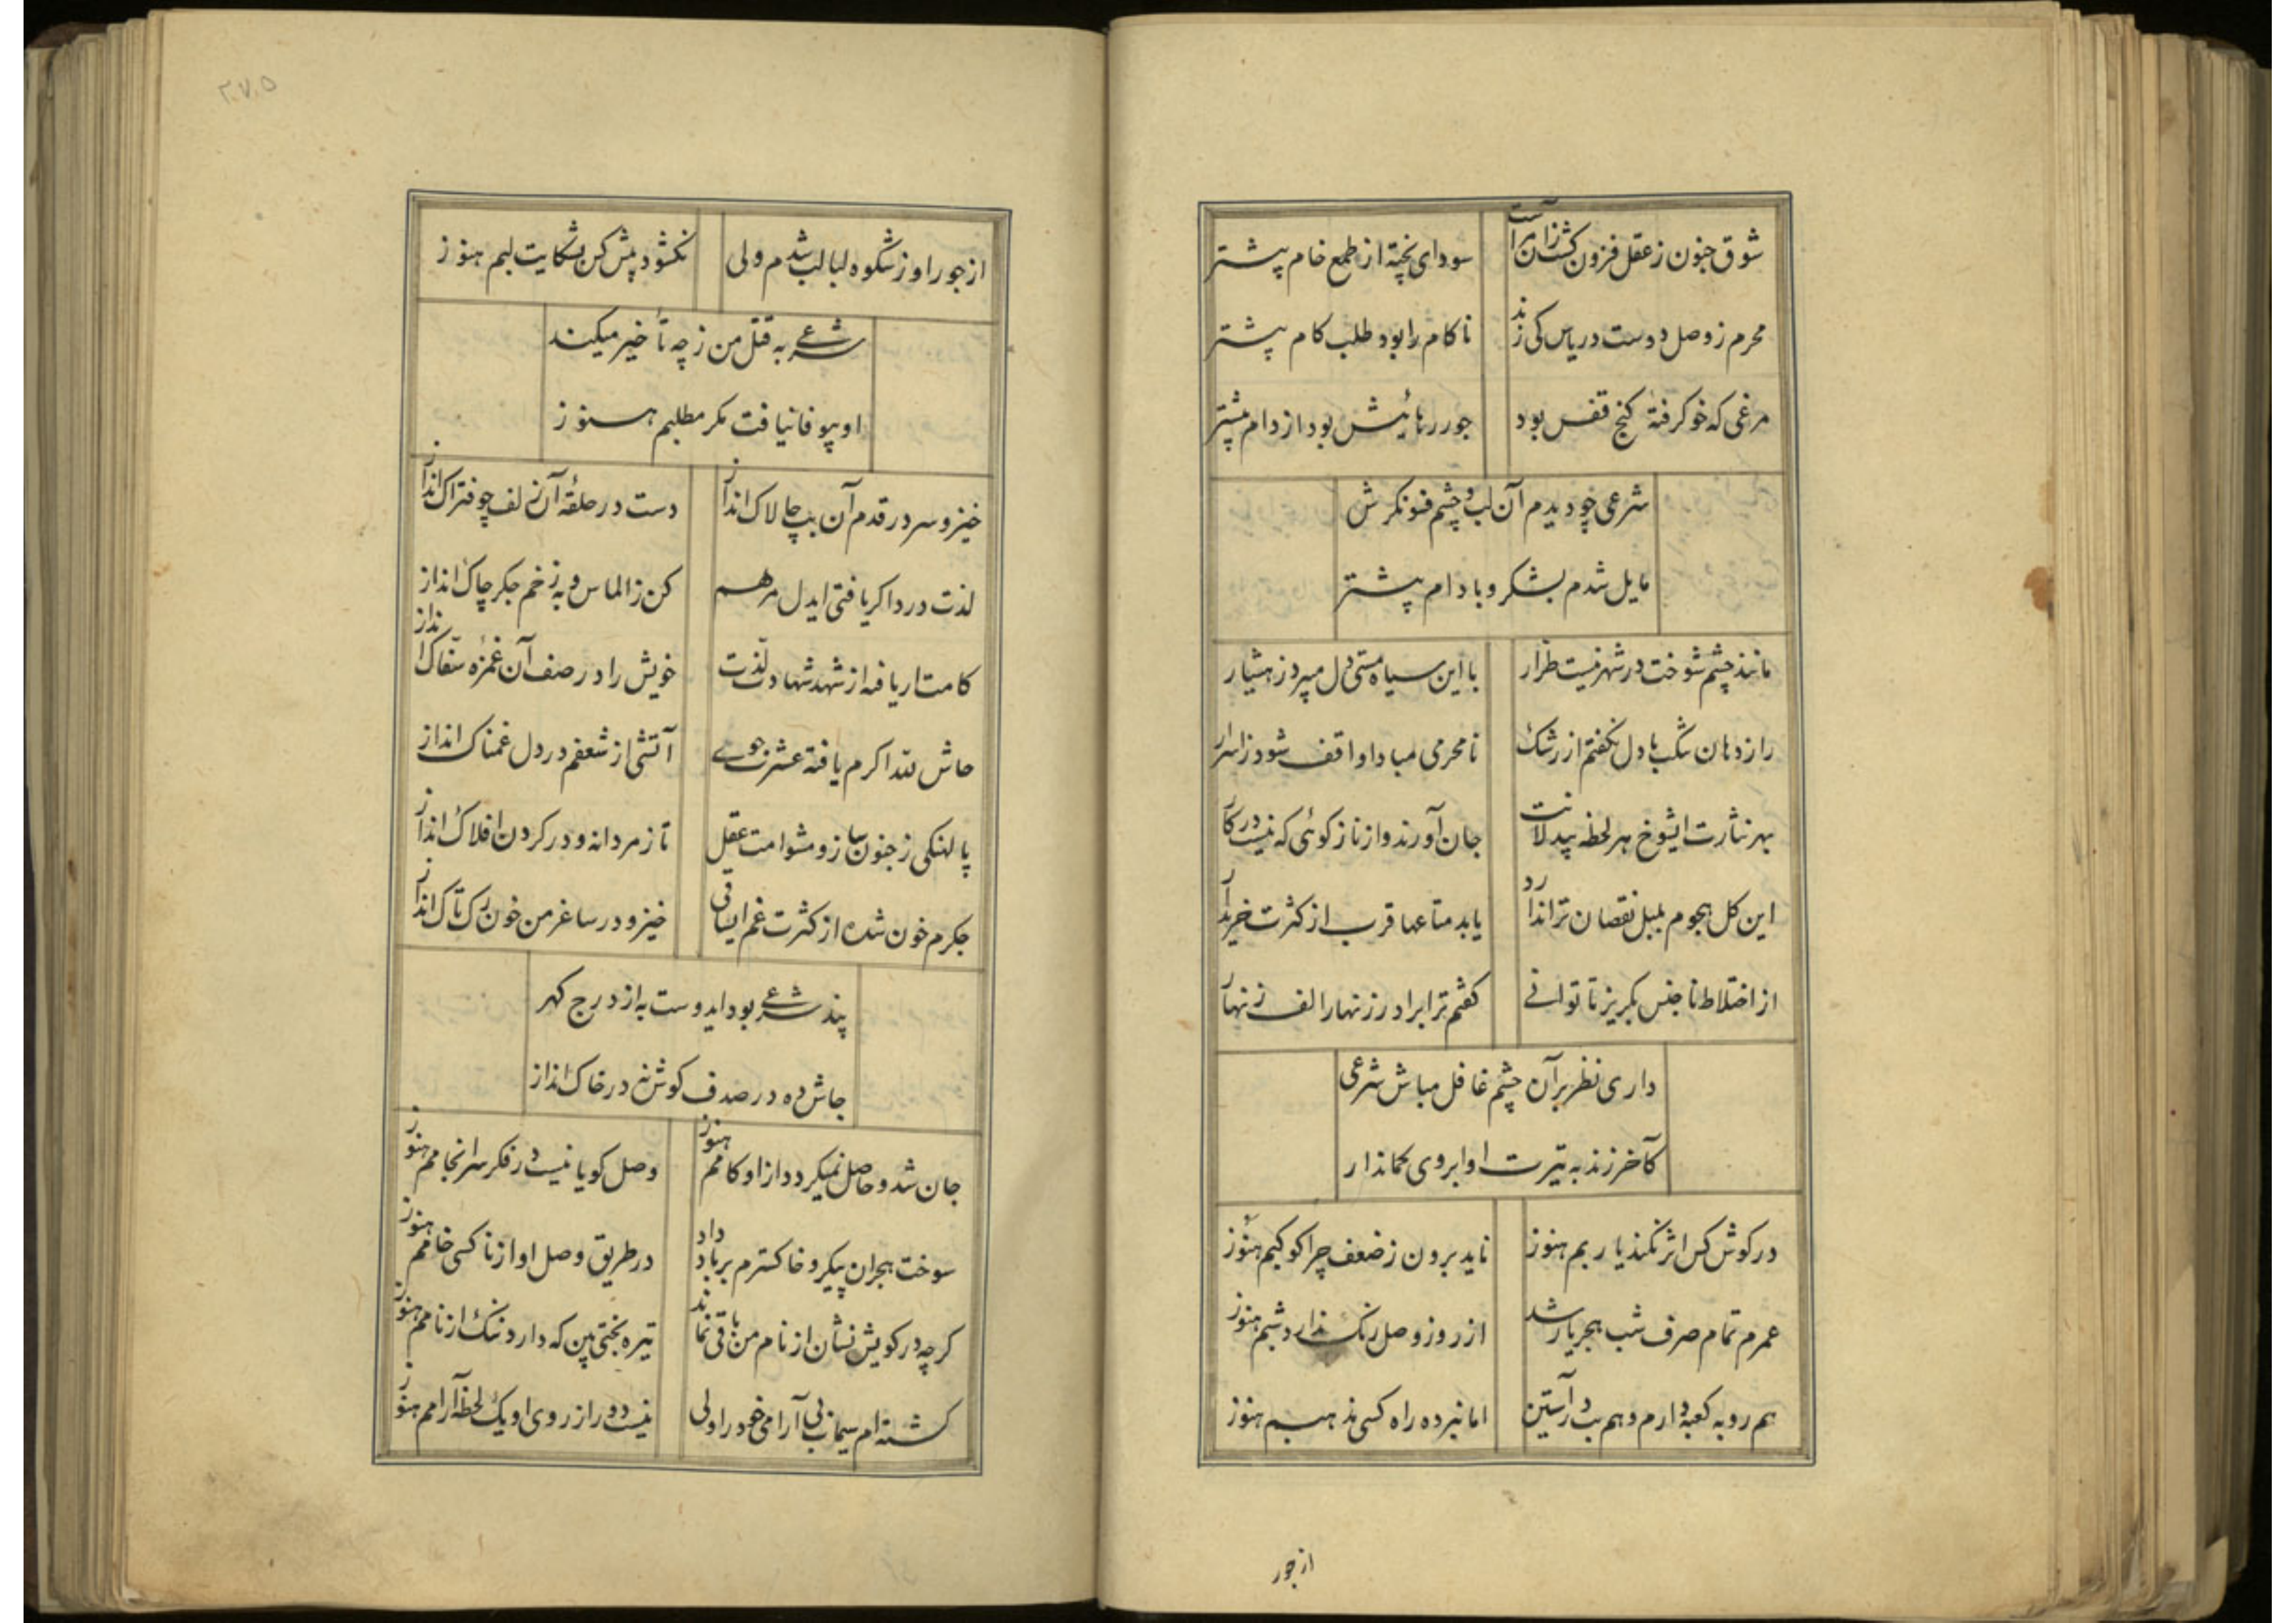 شوق جنون ز عقل فزون کشت زان مرا است
سودای پخته از طمع خام پیشتر
محرم ز وصل دوست در یاس کی زند
ناکام را بود طلب کام پیشتر
مرغی که خو کرفتهٔ کنج قفس بود
جور رهائیش بود از دام پیشتر
شرعی چو دیدم آن لب و چشم فسونکرش
مایل شدم بشکر و بادام پیشتر
مانند چشم شوخت در شهر نیست طرار
با این سیاه مستی دل میبرد ز هشیار
راز دهان تنکت با دل نکفتم از رشک
نامحرمی مبادا واقف شود ز اسرار
بهر نثارت ایشوخ هر لحظه بیدلانت
جان آورند و از ناز کوئی که نیست در کار
این کل هجوم بلبل نقصان ترا ندارد
یابد متاعها قرب از کثرت خریدار
از اختلاط ناجنس بکریز تا توانی
کفتم ترا برادر زنهار الف زنهار
داری نظر بر آن چشم غافل مباش شرعی
کآخر زند به تیرت او ابروی کماندار
در کوش کس اثر نکند یا ربم هنوز
ناید برون ز ضعف چرا کوکبم هنوز
عمرم تمام صرف شب هجر یار شد
از روز وصل رنک ندارد شبم هنوز
هم رو به کعبه دارم و هم بت در آستین
اما نبرده راه کسی مذهبم هنوز
از جور
۲۷۵
از جور او ز شکوه لبالب شدم ولی
نکشود پیش کس بشکایت لبم هنوز
شرعی به قتل من ز چه تأخیر میکند
او بیوفا نیافت مکر مطلبم هنوز
خیز و سر در قدم آن بت چالاک انداز
دست در حلقهٔ آن زلف چو فتراک انداز
لذت درد اکر یافتی ایدل مرهم
کن ز الماس و به زخم جکر چاک انداز
کامت ار یافه از شهد شهادت لذت
خویش را در صف آن غمزه سفاک انداز
حاش لله اکرم یافته عشرت جوی
آتشی از شعفم در دل غمناک انداز
پالهنکی ز جنون ساز و مشو امت عقل
تاز مردانه و در کردن افلاک انداز
جکرم خون شده از کثرت غم ایساقی
خیز و در ساغر من خون رک تاک انداز
پند شرعی بود ایدوست به از درج کهر
جاش ده در صدف کوش نه در خاک انداز
جان شد و حاصل نمیکردد از او کامم هنوز
وصل کویا نیست در فکر سرانجامم هنوز
سوخت هجران پیکر و خاکسترم بر باد داد
در طریق وصل او از ناکسی خامم هنوز
کرچه در کویش نشان از نام من باقی نماند
تیره بختی بین که دارد ننک از نامم هنوز
کشته ام سیماب بی آرامی خود را ولی
نیست دور از روی او یک لحظه آرامم هنوز